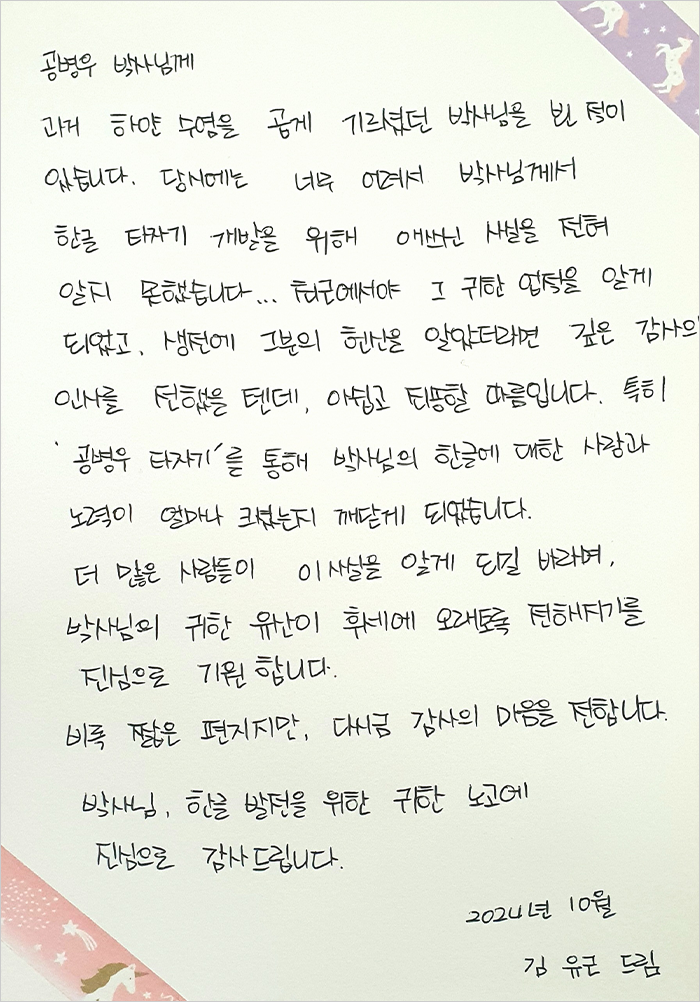 공병우 박사님께
과거 하얀 수염을 곱게 기르셨던 박사님을 뵌 적이
있습니다. 당시에는 너무 어려서 박사님께서
한글 타자기 개발을 위해 애쓰신 사실을 전혀
알지 못했습니다... 최근에서야 그 귀한 업적을 알게
되었고, 생전에 그분의 헌신을 알았더라면 깊은 감사의
인사를 전했을 텐데, 아쉽고 죄송할 따름입니다. 특히
'공병우 타자기'를 통해 박사님의 한글에 대한 사랑과
노력이 얼마나 크셨는지 깨닫게 되었습니다.
더 많은 사람들이 이 사실을 알게 되길 바라며,
박사님의 귀한 유산이 후세에 오래도록 전해지기를
진심으로 기원합니다.
비록 짧은 편지지만, 다시금 감사의 마음을 전합니다.
박사님, 한글 발전을 위한 귀한 노고에
진심으로 감사드립니다.
2024년 10월
김유근 드림